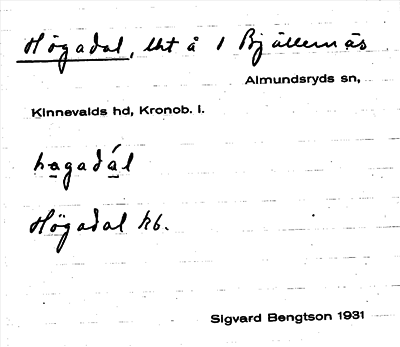 Högadal, lht å 1 Bjällernäs
Almundsryds sn,
Kinnevalds hd, Kronob. l.
hagadál
Högadal kb.
Sigvard Bengtson 1931